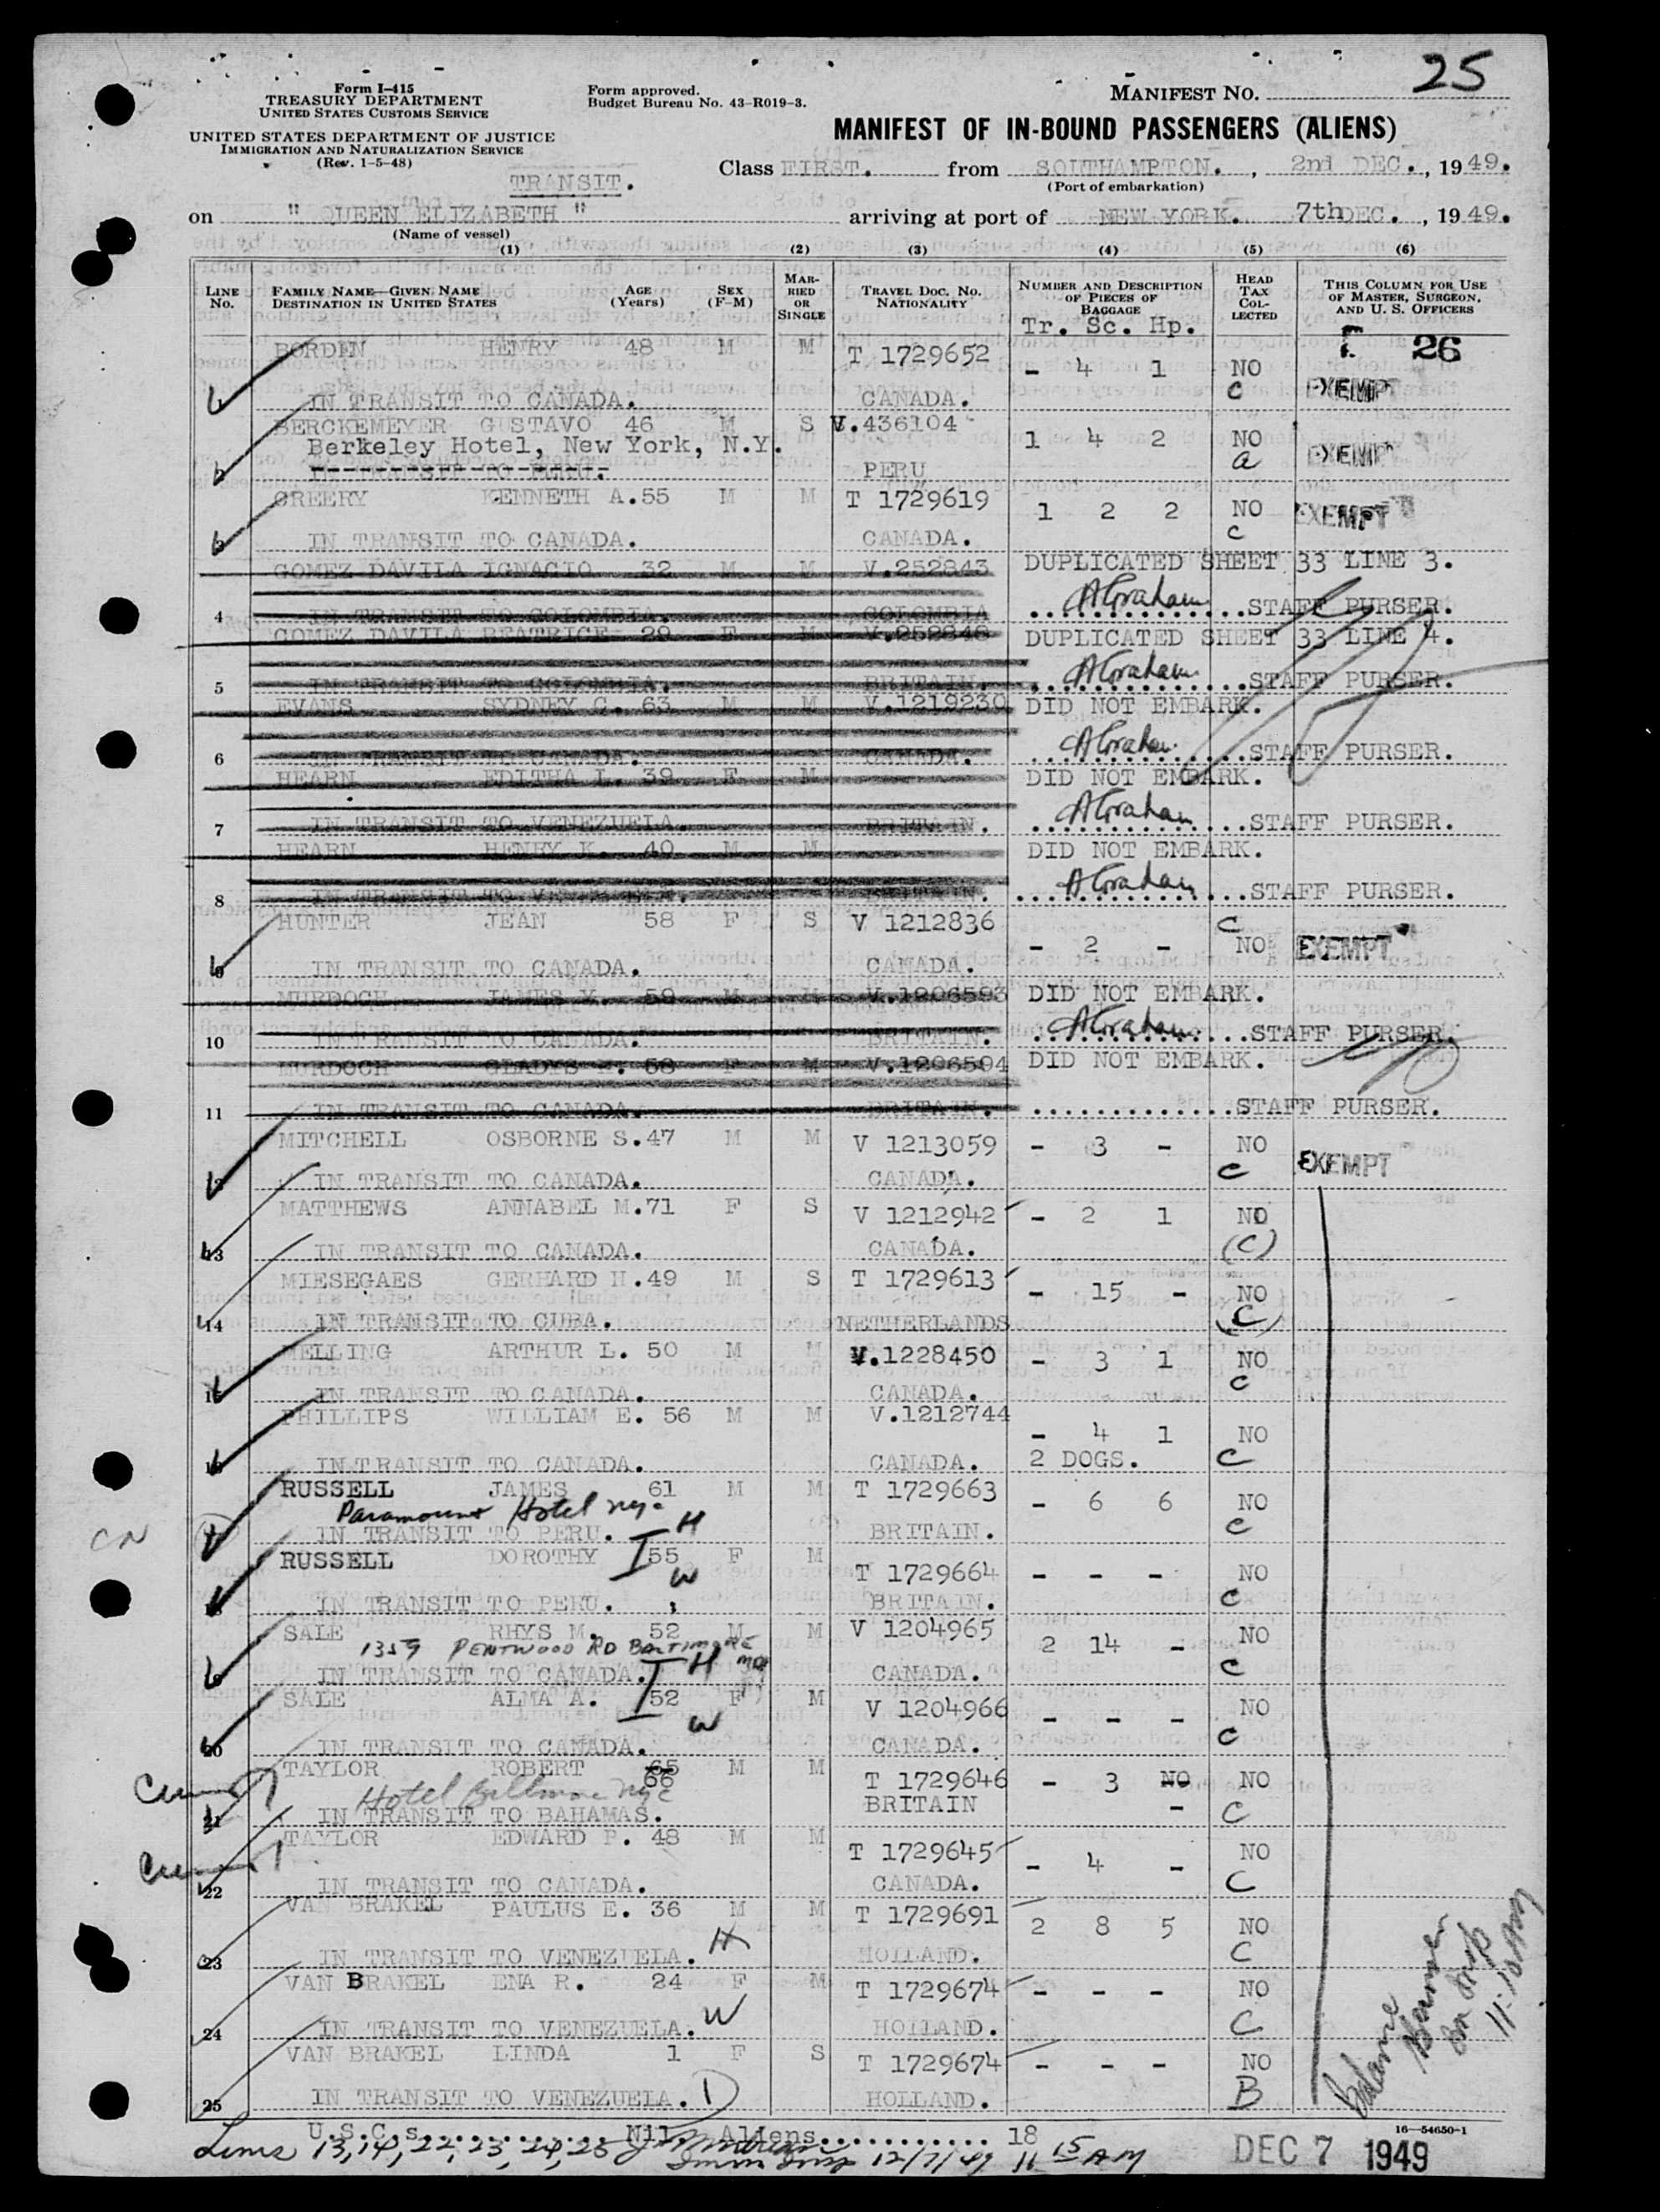 25
Form I-415
TREASURY DEPARTMENT
UNITED STATES CUSTOMS SERVICE
Form approved.
Budget Bureau No. 43-R019-3.
MANIFEST NO.
UNITED STATES DEPARTMENT OF JUSTICE
IMMIGRATION AND NATURALIZATION SERVICE
(Rev. 1-5-48)
MANIFEST OF IN-BOUND PASSENGERS (ALIENS)
TRANSIT.
Class FIRST. from SOUTHAMPTON. , 2nd DEC. , 1949.
(Port of embarkation)
on " QUEEN ELIZABETH " arriving at port of NEW YORK. 7th DEC. , 1949.
(Name of vessel)
(1) (2) (3) (4) (5) (6)
LINE No. FAMILY NAME—GIVEN NAME DESTINATION IN UNITED STATES AGE (Years) SEX (F-M) MARRIED OR SINGLE TRAVEL DOC. NO. NATIONALITY NUMBER AND DESCRIPTION OF PIECES OF BAGGAGE HEAD TAX COLLECTED THIS COLUMN FOR USE OF MASTER, SURGEON, AND U. S. OFFICERS
Tr. Sc. Hp.
26
BORDEN HENRY 48 M M T 1729652 - 4 1 NO
C EXEMPT
IN TRANSIT TO CANADA. CANADA.
BERCKEMEYER GUSTAVO 46 M S V.436104
Berkeley Hotel, New York, N.Y. 1 4 2 NO
a EXEMPT
PERU
CREERY KENNETH A. 55 M M T 1729619
1 2 2 NO EXEMPT
C
IN TRANSIT TO CANADA. CANADA.
GOMEZ DAVILA IGNACIO 32 M M V.252843 DUPLICATED SHEET 33 LINE 3.
4 IN TRANSIT TO COLOMBIA. COLOMBIA AGraham STAFF PURSER.
GOMEZ DAVILA BEATRICE 29 F M V.252846 DUPLICATED SHEET 33 LINE 4.
5 IN TRANSIT TO COLOMBIA. BRITAIN. AGraham STAFF PURSER.
EVANS SYDNEY G. 63 M M V.1219230 DID NOT EMBARK.
6 IN TRANSIT TO CANADA. CANADA. AGraham STAFF PURSER.
HEARN EDITHA L. 39 F M DID NOT EMBARK.
7 IN TRANSIT TO VENEZUELA. BRITAIN. AGraham STAFF PURSER.
HEARN HENRY K. 40 M M DID NOT EMBARK.
8 IN TRANSIT TO BRITAIN. AGraham STAFF PURSER.
HUNTER JEAN 58 F S V 1212836 C
- 2 - NO EXEMPT
IN TRANSIT TO CANADA. CANADA.
MURDOCH JAMES Y. 59 M M V.1206593 DID NOT EMBARK.
10 IN TRANSIT TO CANADA. BRITAIN. AGraham STAFF PURSER.
MURDOCH GLADYS 58 F M V.1206594 DID NOT EMBARK.
11 IN TRANSIT TO CANADA. BRITAIN. STAFF PURSER.
MITCHELL OSBORNE S. 47 M M V 1213059 - 3 - NO
C EXEMPT
IN TRANSIT TO CANADA. CANADA.
MATTHEWS ANNABEL M. 71 F S V 1212942 - 2 1 NO
13 IN TRANSIT TO CANADA. CANADA. (C)
MIESEGAES GERHARD H. 49 M S T 1729613 - 15 - NO
14 IN TRANSIT TO CUBA. NETHERLANDS (C)
MELLING ARTHUR L. 50 M M V.1228450 - 3 1 NO
C
15 IN TRANSIT TO CANADA. CANADA.
PHILLIPS WILLIAM E. 56 M M V.1212744
- 4 1 NO
IN TRANSIT TO CANADA. CANADA. 2 DOGS. C
RUSSELL JAMES 61 M M T 1729663
Paramount Hotel nyc - 6 6 NO
CN IN TRANSIT TO PERU. H BRITAIN. C
RUSSELL DOROTHY 55 F M
W T 1729664 - - - NO
IN TRANSIT TO PERU. BRITAIN. C
SALE RHYS M. 52 M M V 1204965
1359 PENTWOOD RD BALTIMORE 2 14 - NO
IN TRANSIT TO CANADA. H CANADA. C
SALE ALMA A. 52 F M V 1204966
W - - - NO
20 IN TRANSIT TO CANADA. CANADA. C
TAYLOR ROBERT 65 M M
66 T 1729646 - 3 NO NO
Hotel nyc BRITAIN -
21 IN TRANSIT TO BAHAMAS. C
TAYLOR EDWARD P. 48 M M
T 1729645 - 4 - NO
22 IN TRANSIT TO CANADA. CANADA. C
VAN BRAKEL PAULUS E. 36 M M T 1729691 2 8 5 NO
23 IN TRANSIT TO VENEZUELA. H HOLLAND. C
VAN BRAKEL ENA R. 24 F M T 1729674 - - - NO
24 IN TRANSIT TO VENEZUELA. W HOLLAND. C
VAN BRAKEL LINDA 1 F S T 1729674 - - - NO
25 IN TRANSIT TO VENEZUELA. D HOLLAND. B
U.S.C.s. Nil. Aliens 18 16—54650-1
Lines 13, 14, 22, 23, 24, 25 12/7/49 11 15 AM DEC 7 1949
11:10 AM